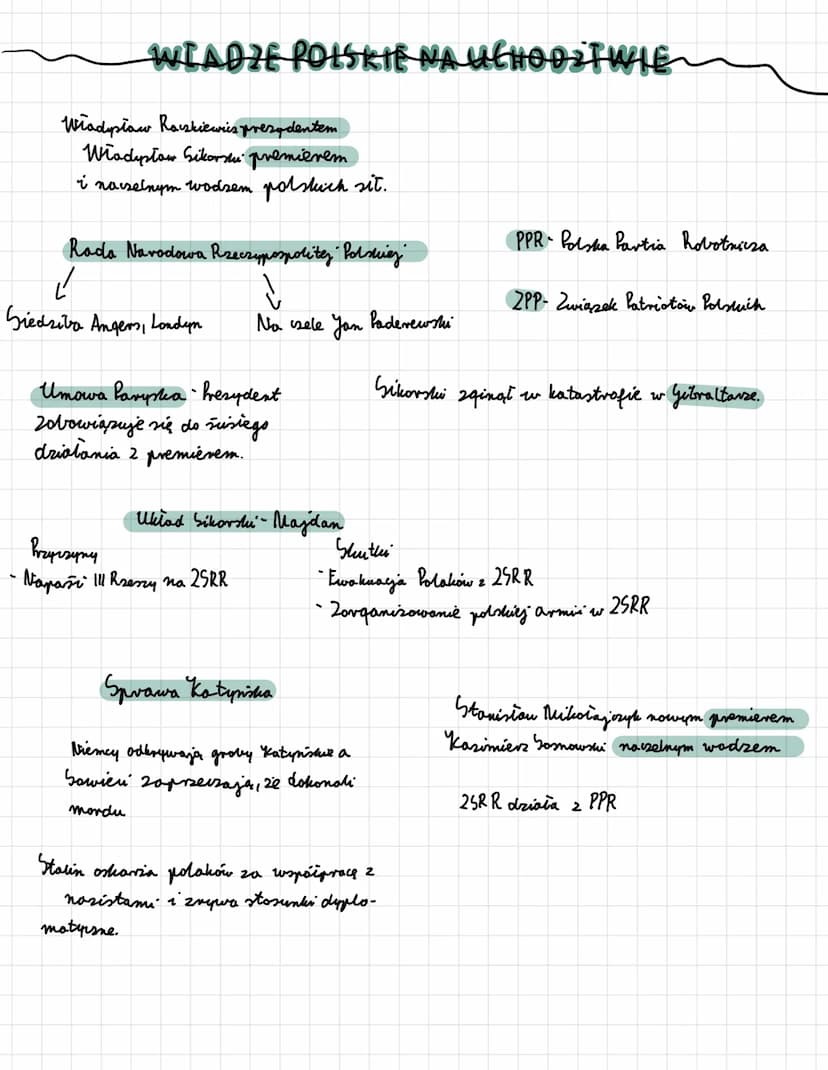 WŁADZE POLSKIE NA UCHODŹTWIE
Władysław Raczkiewicz prezydentem
Władysław Sikorski premierem
i naczelnym wodzem polskich sił.
Rada Narodowa Rzeczypospolitej Polskiej
Siedziba Angers, Londyn
Na czele Jan Paderewski
PPR - Polska Partia Robotnicza
ZPP - Związek Patriotów Polskich
Umowa Paryska - Prezydent
zobowiązuje się do ścisłego
działania z premierem.
Sikorski zginął w katastrofie w Gibraltarze.
Układ Sikorski - Majdan
Przyczyny
- Napaść III Rzeszy na ZSRR
Skutki
- Ewakuacja Polaków z ZSRR
- Zorganizowanie polskiej armii w ZSRR
Sprawa Katyńska
Niemcy odkrywają groby Katyńskie a
Sowieci zaprzeczają, że dokonali
mordu
Stalin oskarża polaków za współpracę z
nazistami i zrywa stosunki dyplo-
matyczne.
Stanisław Mikołajczyk nowym premierem
Kazimierz Sosnowski naczelnym wodzem
ZSRR działa z PPR